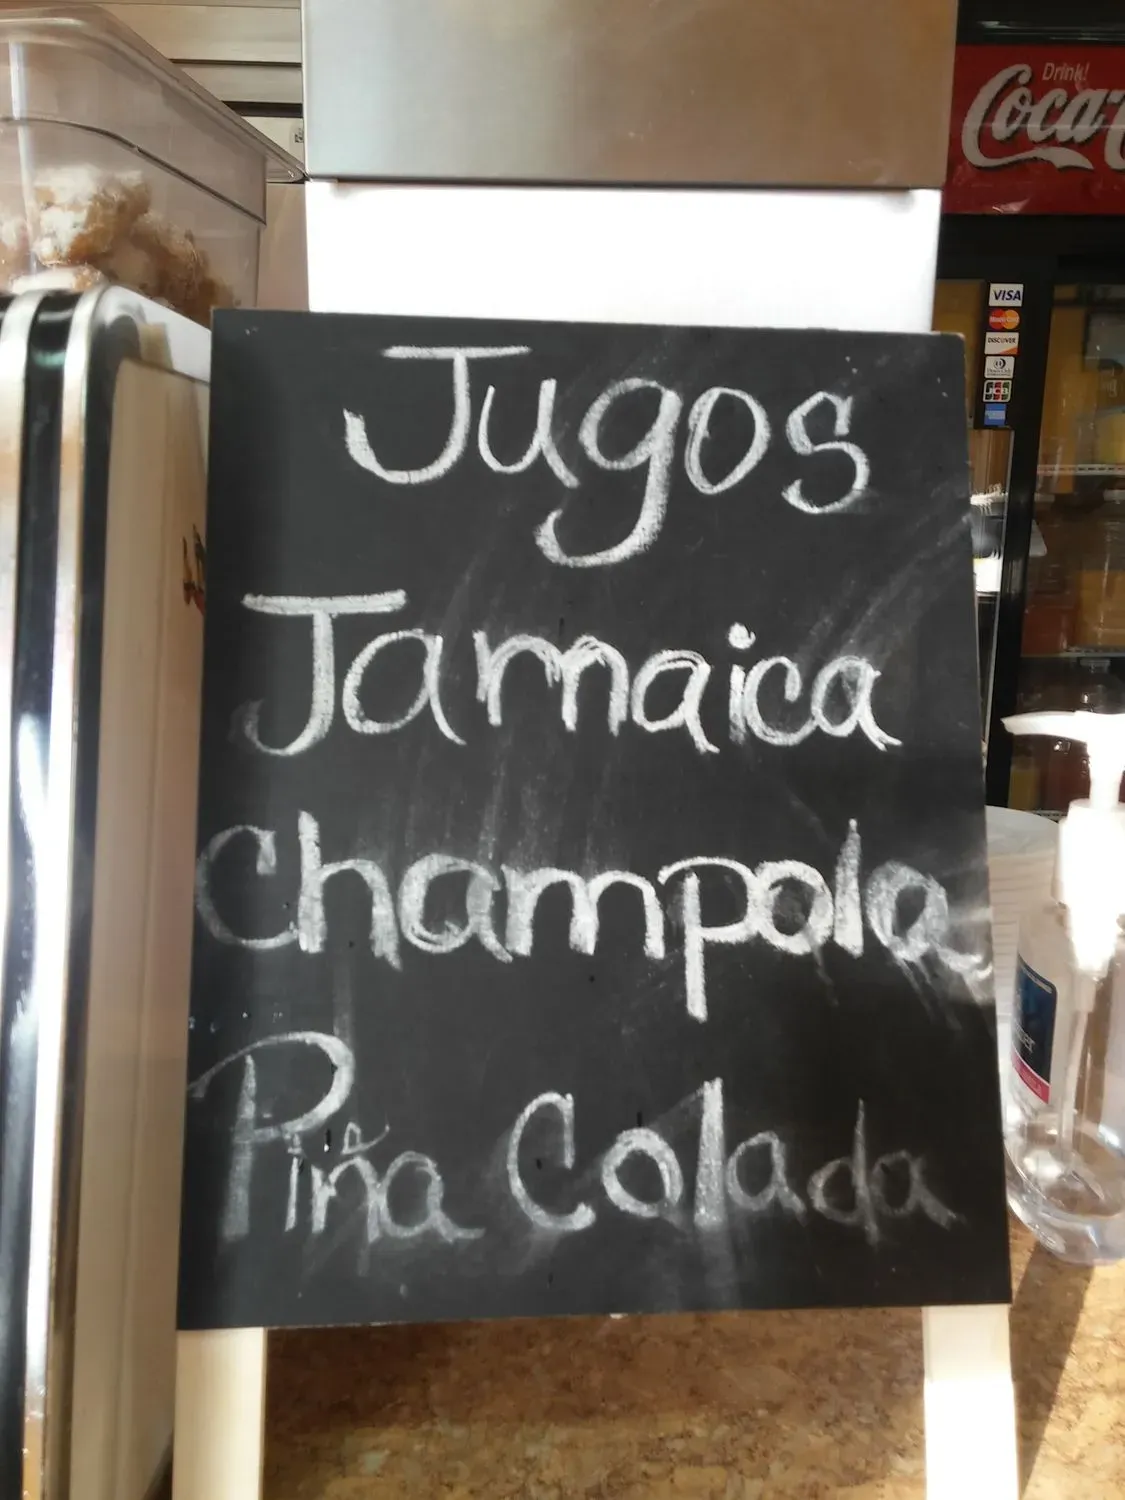 Drink!
Coca-C
VISA
MasterCard
DISCOVER
JCB
Jugos
Jamaica
Champola
Piña Colada